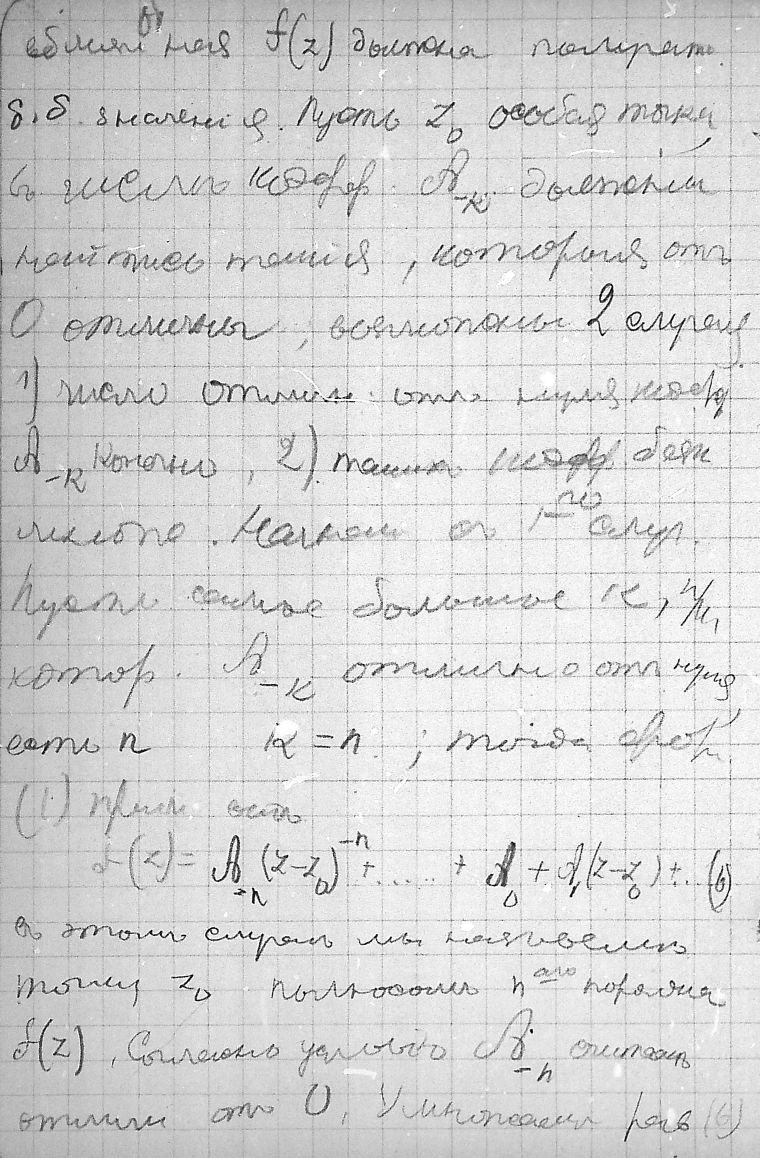 вблизи ная f(z) должна получать
б. б. значенія. Пусть z₀ особая точка,
въ числѣ коэфф. A₋ₖ должны
найтись такія, которыя отъ
0 отличны, возможны 2 случая
1) число отличн. отъ нуля коэф
A₋ₖ конечно, 2) такихъ коэфф. без
численно. Начнемъ съ 1-го случ.
Пусть самое большое k, при
котор. A₋ₖ отлично отъ нуля,
есть n k = n ; тогда фор.
(1) приметъ
f(z) = A₋ₙ(z−z₀)⁻ⁿ + ..... + A₀ + A₁(z−z₀) + .. (6)
въ этомъ случаѣ мы называемъ
точку z₀ полюсомъ n-аго порядка
f(z), Согласно условію A₋ₙ считаемъ
отличн отъ 0, Умножаемъ рав (6)